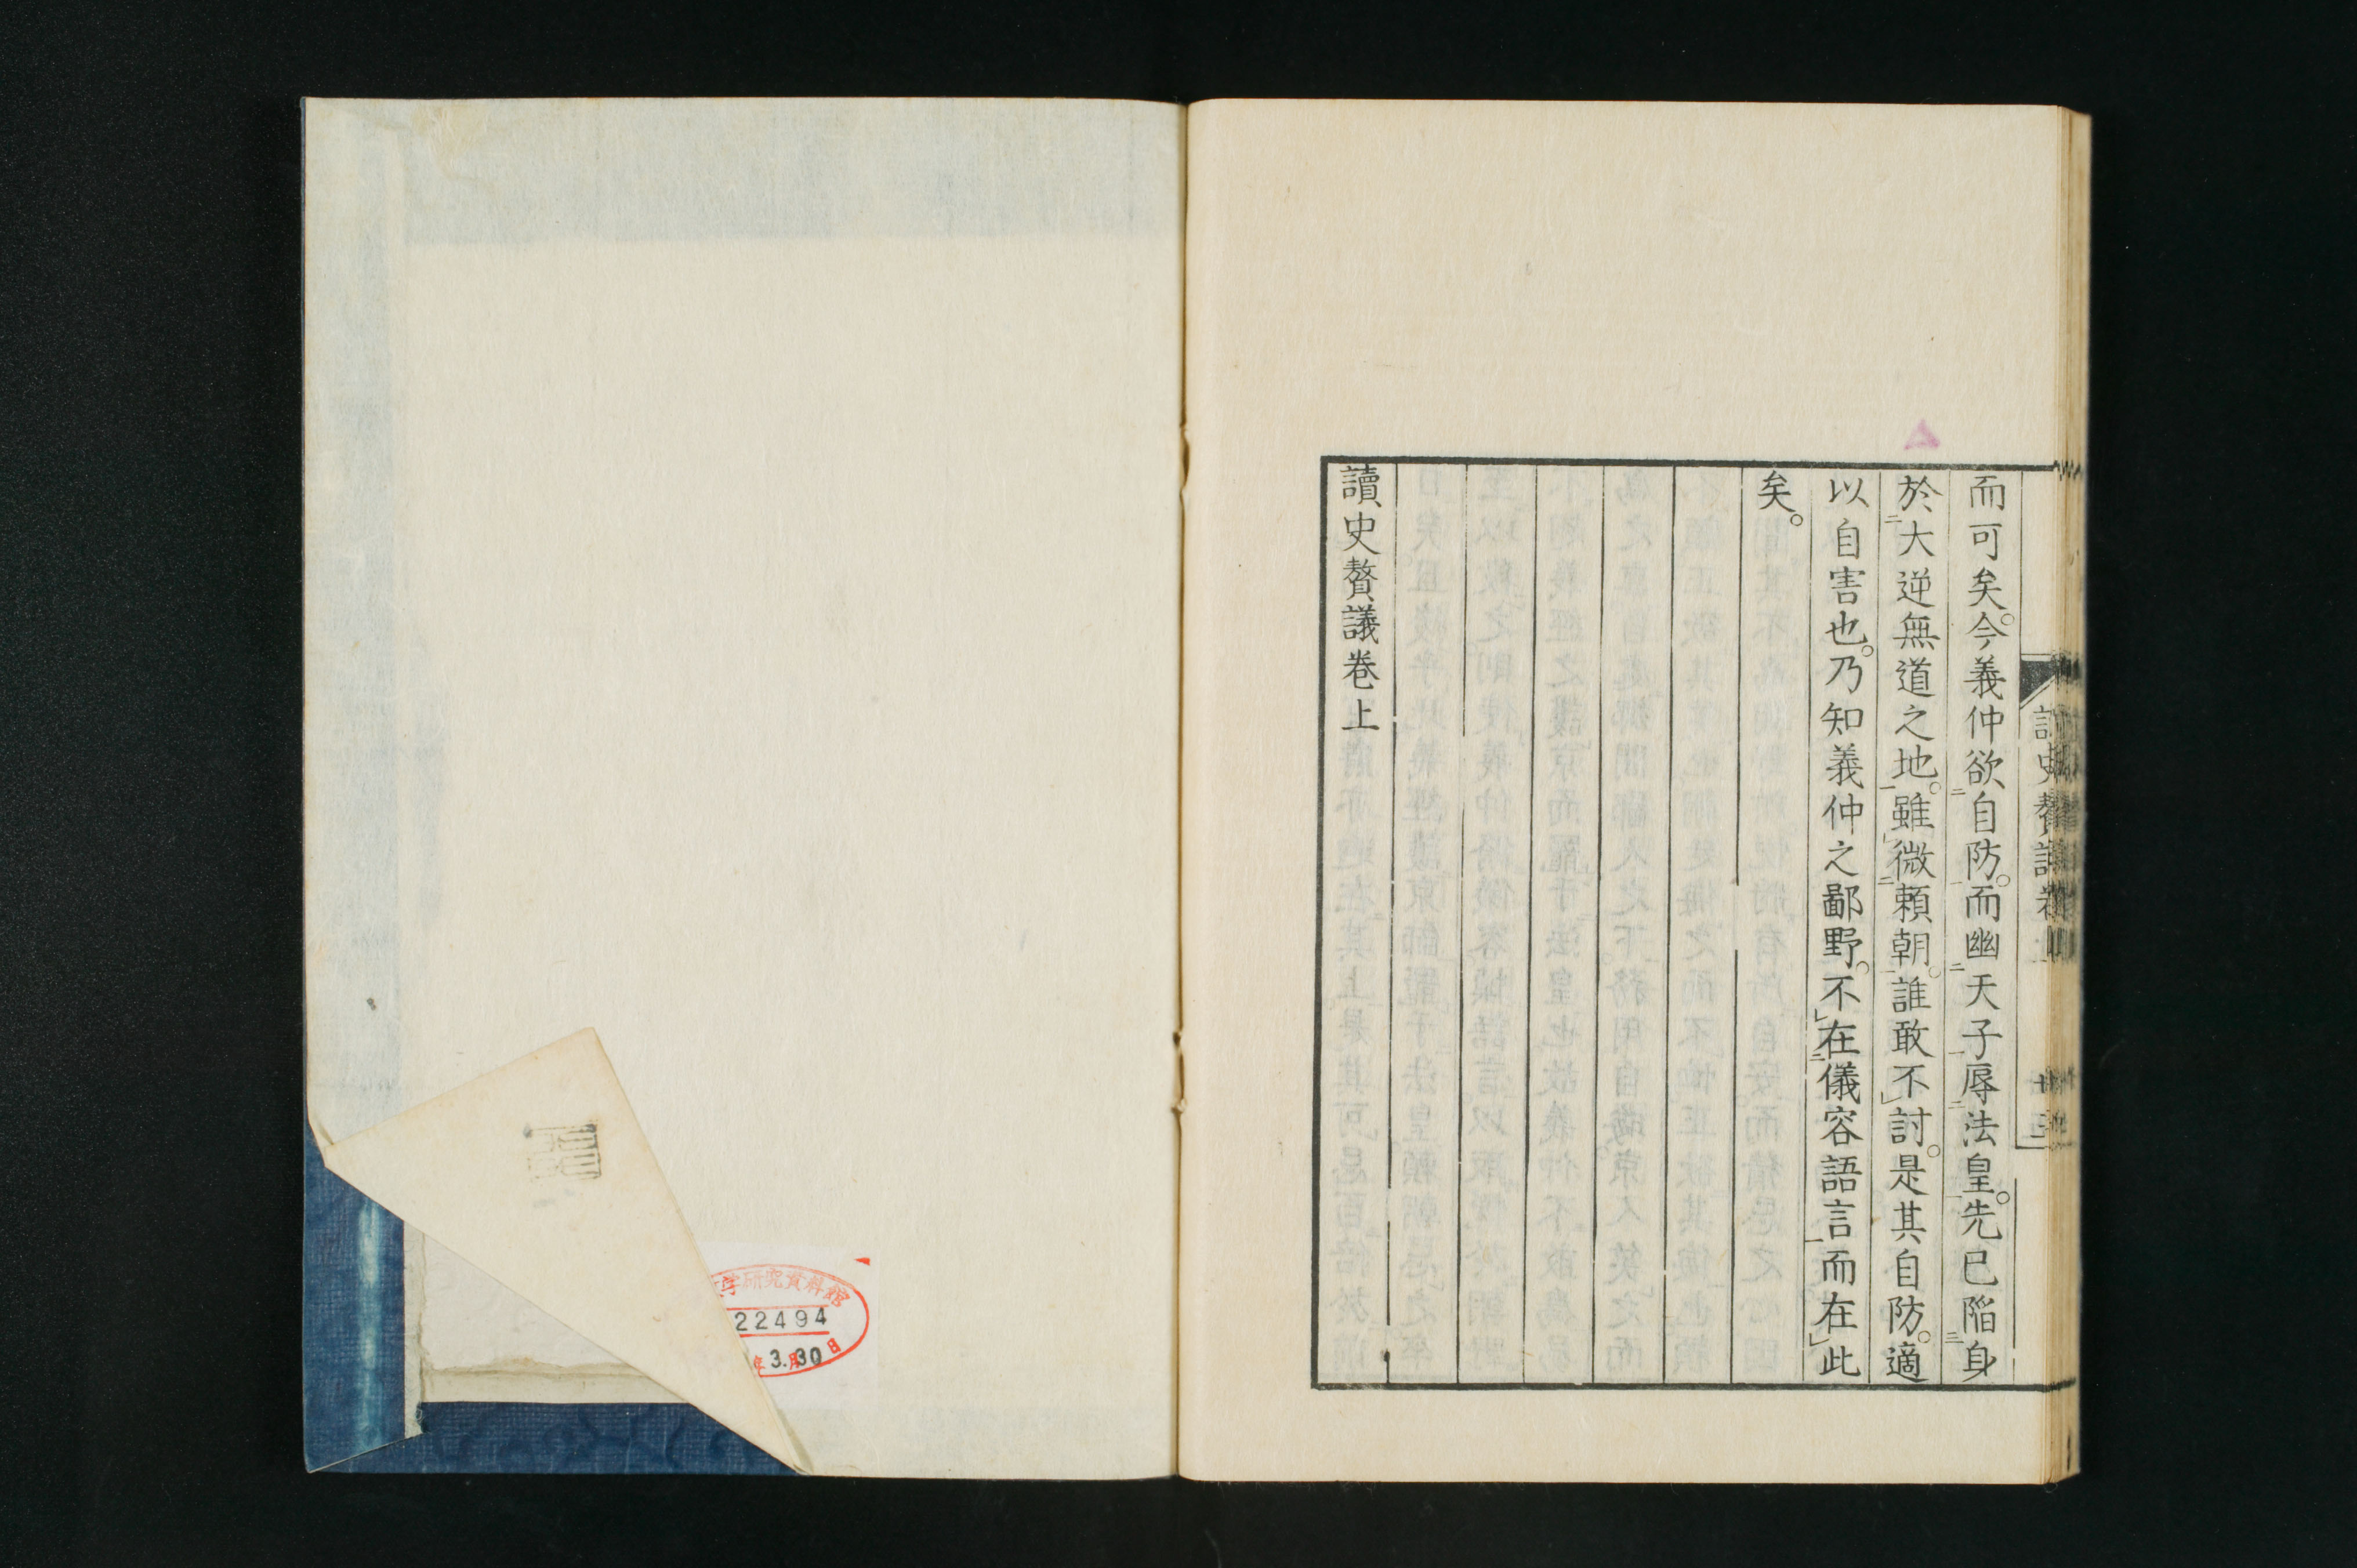 而可矣。今義仲欲自防。而幽天子辱法皇。先已陷身
於大逆無道之地。雖微頼朝。誰敢不討。是其自防。適
以自害也。乃知義仲之鄙野。不在儀容語言而在此
矣。
讀史贅議卷上
字研究資料館
22494
年3.月30日